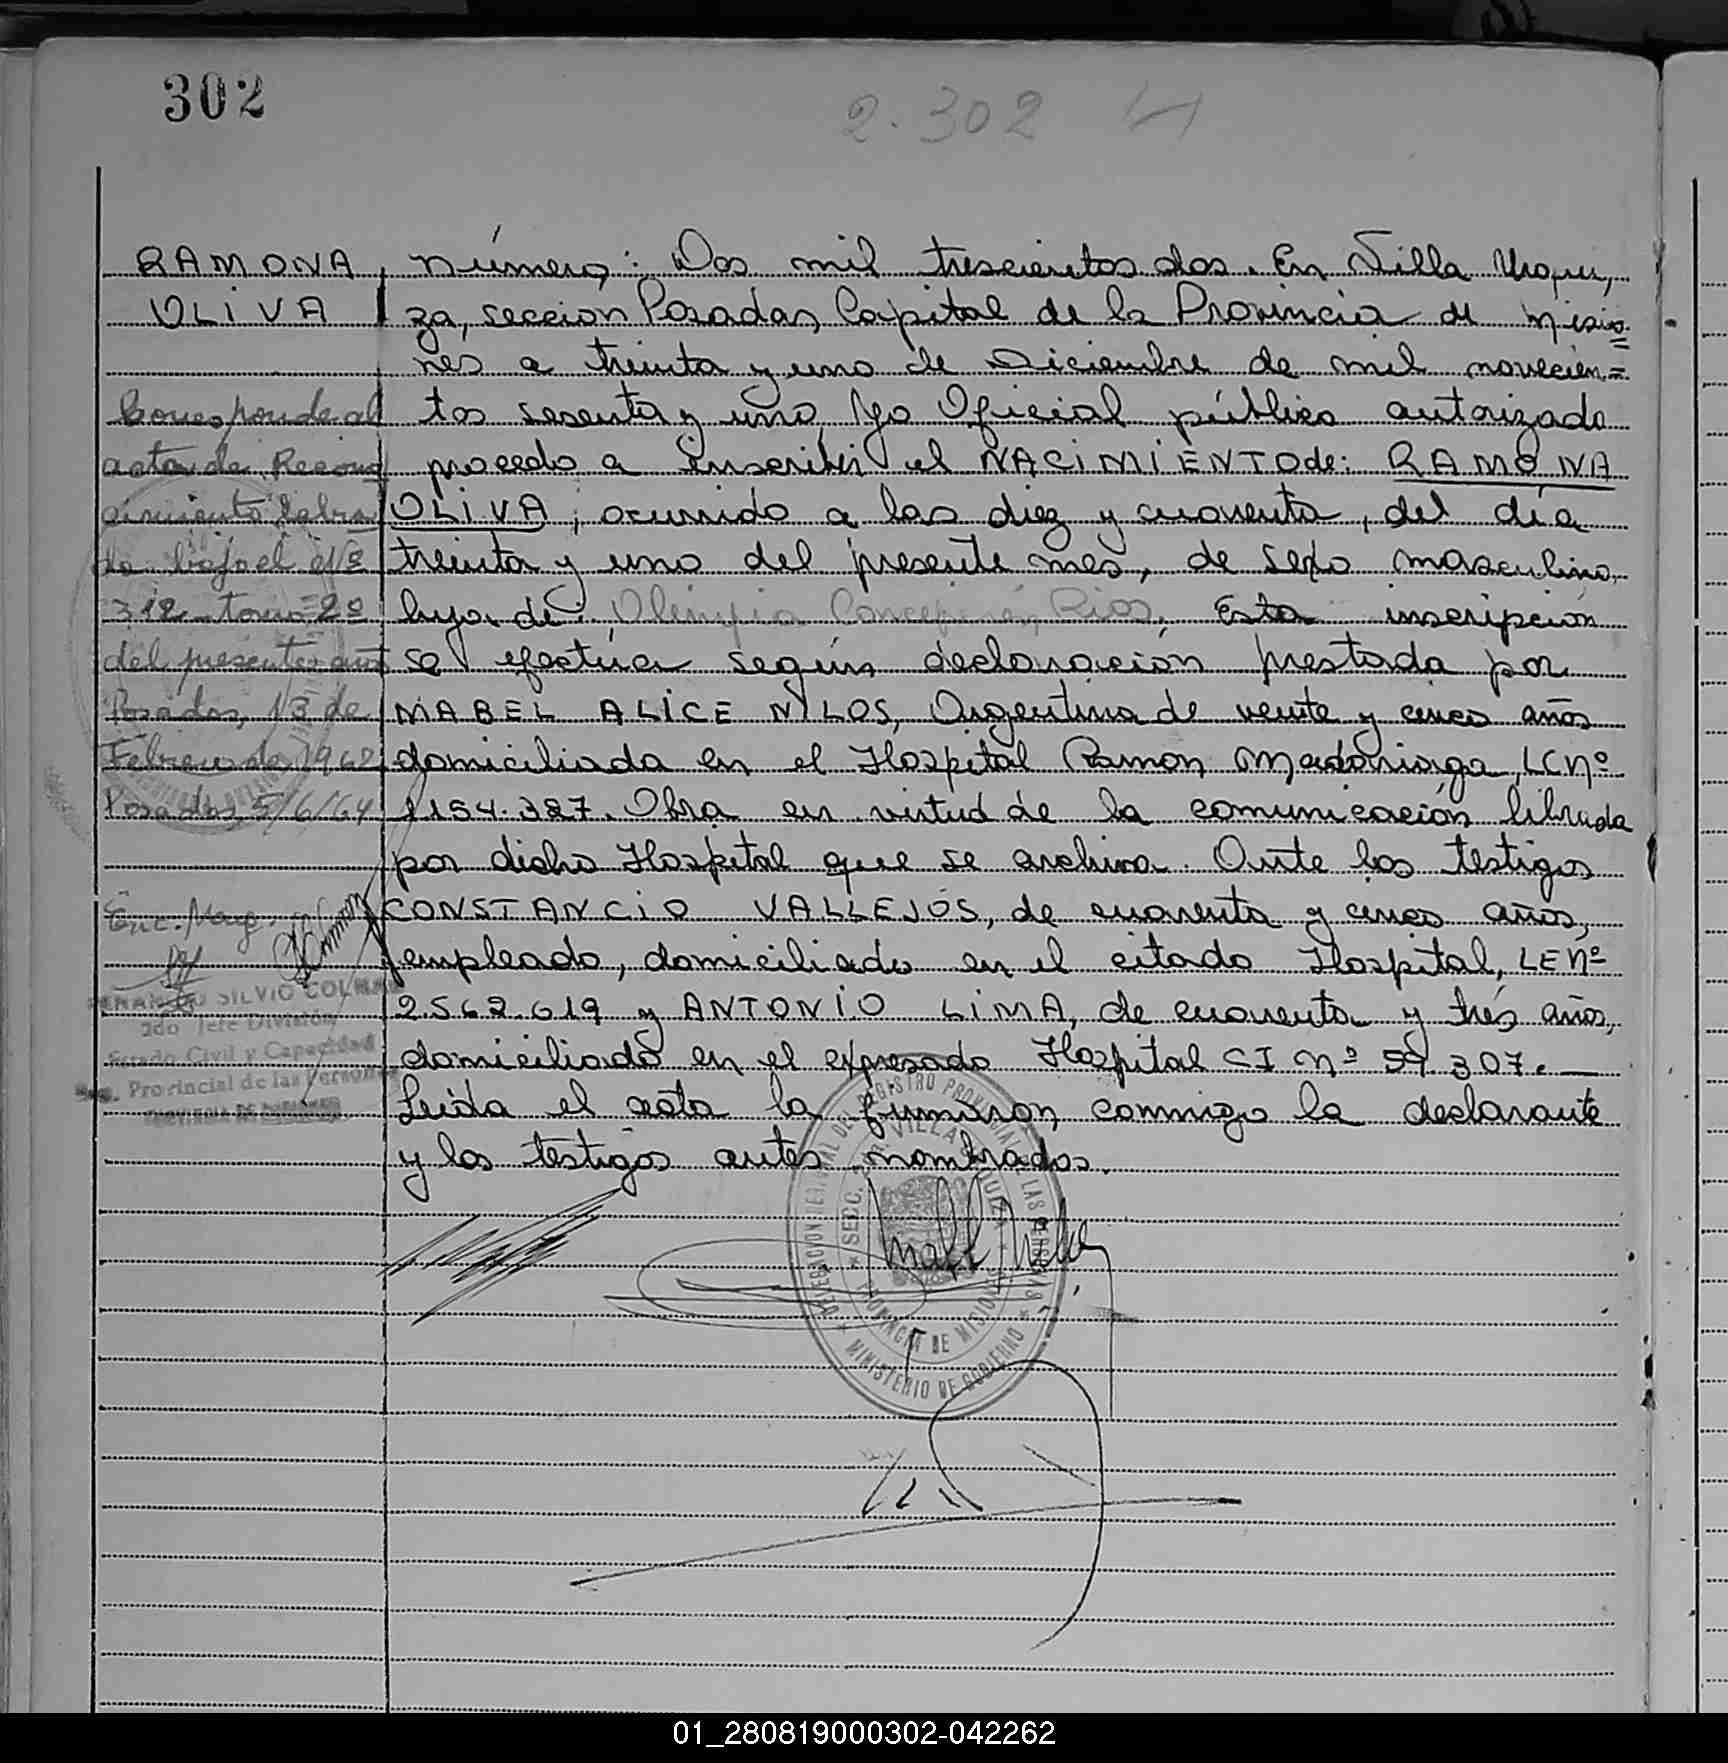 302
2.302
RAMONA
OLIVA
Corresponde al
acta de Recono
cimiento labra
da bajo el Nº
312 tomo 2º
del presente año
Posadas, 13 de
Febrero de 1962
Posadas, 5/6/64
Enc. Marg.
SILVIO COLMAN
2do Jefe División
Estado Civil y Capacidad
Reg. Provincial de las Personas
PROVINCIA DE MISIONES
Número: Dos mil trescientos dos. En Villa Urqui,
za, sección Posadas, Capital de la Provincia de Misio
nes a treinta y uno de Diciembre de mil novecien=
tos sesenta y uno, Yo Oficial público autorizado
procedo a inscribir el NACIMIENTO de: RAMONA
OLIVA, ocurrido a las diez y cuarenta, del día
treinta y uno del presente mes, de sexo masculino,
hija de: Olimpia Concepción Rios, Esta inscripción
se efectúa según declaración prestada por
MABEL ALICE NILOS, Argentina de veinte y cinco años
domiciliada en el Hospital Ramón Madariaga, LC Nº
1154.387. Obra en virtud de la comunicación librada
por dicho Hospital que se archiva. Ante los testigos
CONSTANCIO VALLEJOS, de cuarenta y cinco años,
empleado, domiciliado en el citado Hospital, LE Nº
2.562.619 y ANTONIO LIMA, de cuarenta y trés años,
domiciliado en el expresado Hospital CI Nº 59.307.
Leída el acta la firmaron, conmigo la declarante
y los testigos antes nombrados.
DELEGACION DEL REGISTRO PROVINCIAL DE LAS PERSONAS
SECC. VILLA URQUIZA
PROVINCIA DE MISIONES
MINISTERIO DE GOBIERNO
01_280819000302-042262